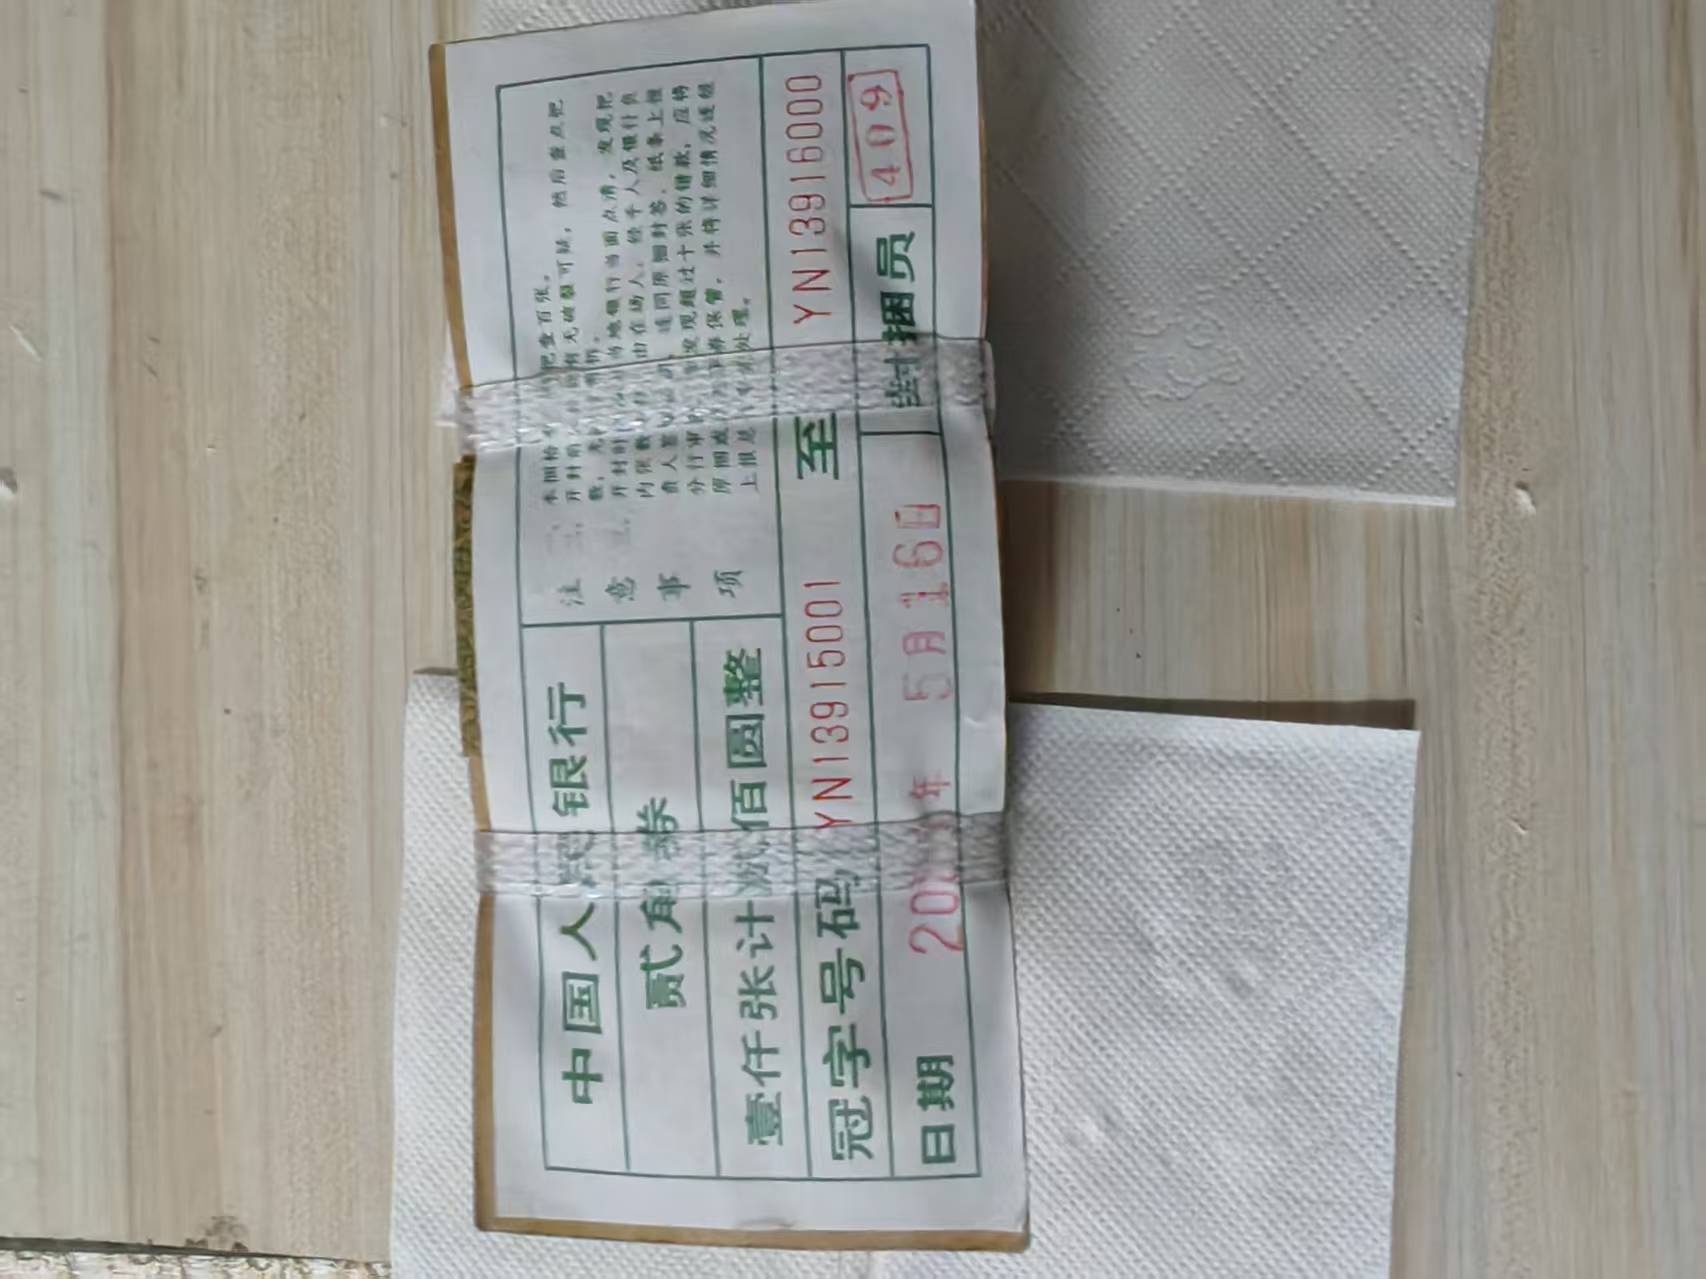 中国人民银行
贰角券
壹仟张计贰佰圆整
注意事项
一、本捆
把壹百张。
开封前
有无破裂可疑，然后查点把
数，
开封时
当地银行当面点清，发现把
内张数
由在场人、经手人及银行负
责人签
连同原捆封签、纸条上报
分行审
发现超过十张的错款，应将
原捆或
券保管，并将详细情况连报
上报总
处理。
冠字号码 YN13915001 至 YN13916000
日期 20 年 5月16日 封捆员 409